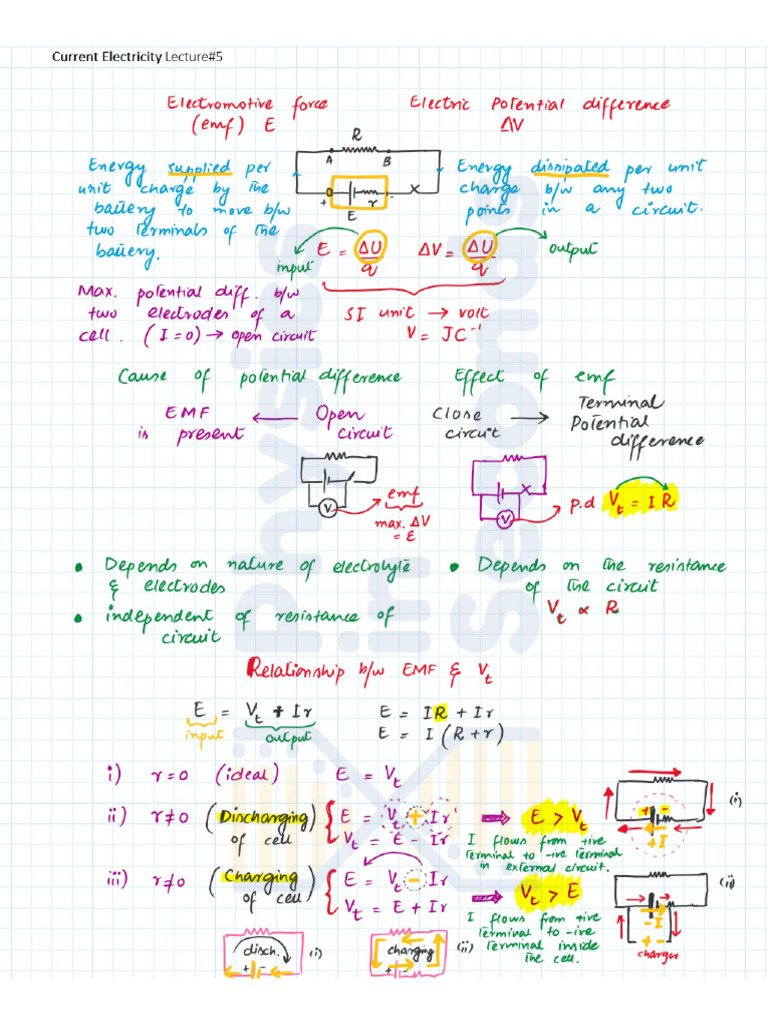 Current Electricity Lecture#5
Electromotive force
(emf) E
Electric Potential difference
ΔV
R
A B
+ -
r
E
Energy supplied per
unit charge by the
battery to move b/w
two terminals of the
battery.
Energy dissipated per unit
charge b/w any two
points in a circuit.
E = ΔU/q
input
ΔV = ΔU/q
output
SI unit → volt
V = JC⁻¹
Max. potential diff. b/w
two electrodes of a
cell. (I=0) → open circuit
Cause of potential difference
Effect of emf
EMF ← Open
is present circuit
Close → Terminal
circuit Potential
difference
V
emf
max. ΔV
= E
V
p.d Vt = IR
• Depends on nature of electrolyte
& electrodes
• independent of resistance of
circuit
• Depends on the resistance
of the circuit
Vt ∝ R
Relationship b/w EMF & Vt
E = Vt + Ir
input output
E = IR + Ir
E = I(R+r)
i) r=0 (ideal) E = Vt
ii) r≠0 (Discharging
of cell)
E = Vt + Ir
Vt = E - Ir
⇒ E > Vt
I flows from +ive
terminal to -ive terminal
in external circuit.
+ -
+I
(i)
iii) r≠0 (Charging
of cell)
E = Vt - Ir
Vt = E + Ir
⇒ Vt > E
I flows from +ive
terminal to -ive
terminal inside
the cell.
-I
+ -
charger
(ii)
disch. (i)
+ -
charging (ii)
+ -
Physics
in
Seconds